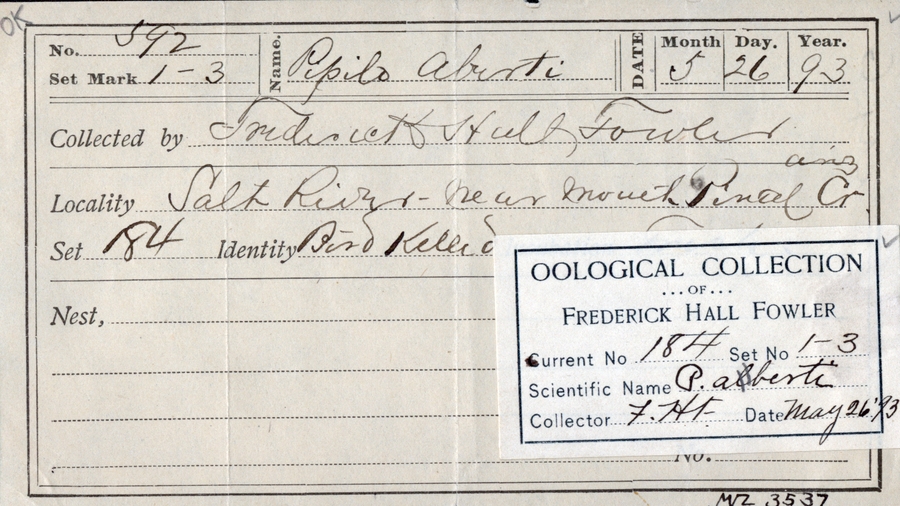 OK
No. 592 Name. Pipilo Aberti DATE Month Day. Year.
Set Mark 1-3 5 26 93
Collected by Frederick Hall Fowler
Locality Salt River - near mouth Pinal Cr
Ariz
Set 184 Identity Bird Killed
Nest,
No.
OOLOGICAL COLLECTION
...OF...
FREDERICK HALL FOWLER
Current No 184 Set No 1-3
Scientific Name P. alberti
Collector F.H.F. Date May 26 '93
MVZ 3537